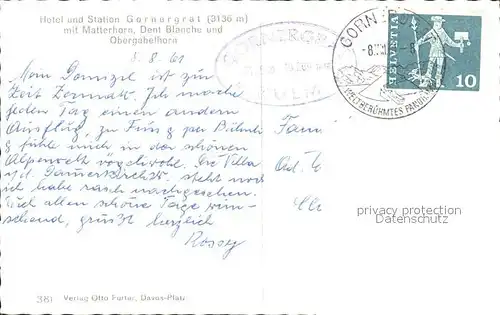 Hotel und Station Gornergrat (3136 m)
mit Matterhorn, Dent Blanche und
Obergabelhorn
5. 8. 61
Mein Domizil ist zur
Zeit Zermatt. Ich mache
jeden Tag einen andern
Ausflug, zu Fuss & per Bähnli
& fühle mich in der schönen
Alpenwelt vögeliwohl. Die Villa
a/d. steht noch
ich habe rasch nachgesehen.
Euch allen schöne Tage wün-
schend, grüsst herzlich
Rossy
381 Verlag Otto Furter, Davos-Platz
GORNERGRAT
KULM
GORNERGR
-8.VIII. -8
WELTBERÜHMTES PANORA
HELVETIA
10
Fami
Ad.
privacy protection
Datenschutz